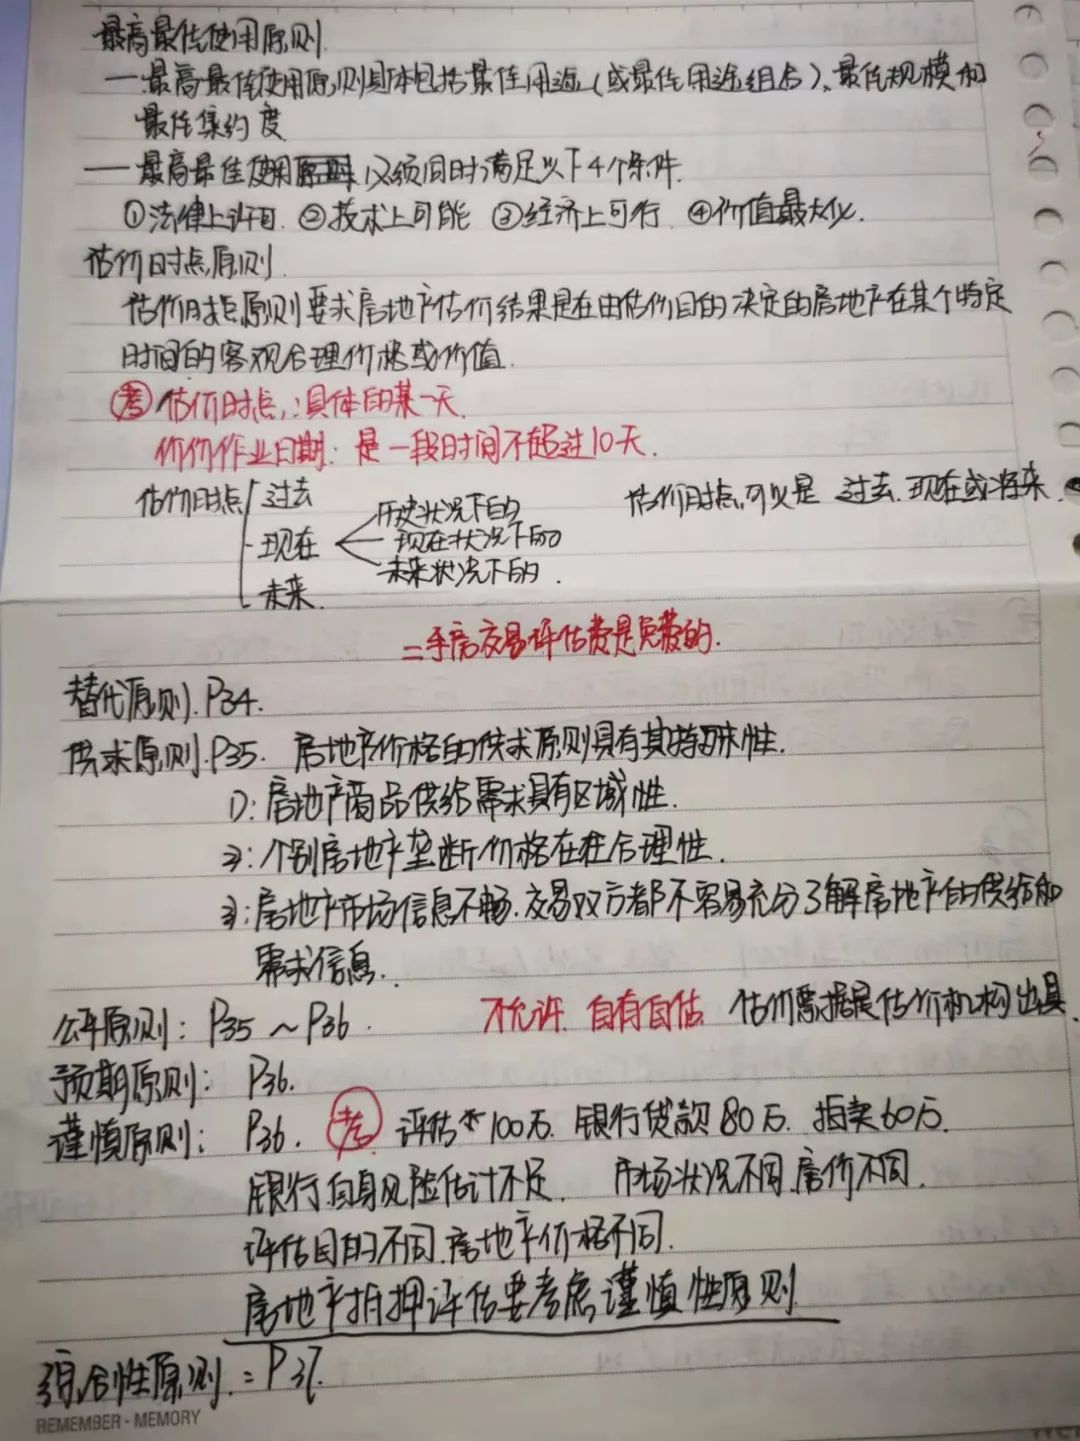 最高最佳使用原则
一 最高最佳使用原则具体包括最佳用途(或最佳用途组合)、最佳规模和
最佳集约度
一 最高最佳使用 必须同时满足以下4个条件.
①法律上许可. ②技术上可能 ③经济上可行. ④价值最大化.
估价时点原则.
估价时点原则要求房地产估价结果是在由估价目的决定的房地产在某个特定
时间的客观合理价格或价值.
考 估价时点:具体的某一天.
价作业日期: 是一段时间不超过10天.
估价时点 过去 估价时点可以是 过去.现在或将来.
现在 历史状况下的
现在状况下的
未来状况下的.
未来.
二手房交易评估费是免费的.
替代原则.P34.
供求原则.P35. 房地产价格的供求原则具有其特殊性.
1): 房地产商品供给需求具有区域性.
2): 个别房地产垄断价格存在合理性.
3): 房地产市场信息不畅.交易双方都不容易充分了解房地产的供给和
需求信息.
公平原则: P35~P36. 不允许 自有自估 估价需据是估价机构出具.
预期原则: P36.
谨慎原则: P36. 考 评估 100万. 银行贷款80万. 拍卖60万.
银行自身风险估计不足. 市场状况不同.房价不同.
评估目的不同.房地产价格不同.
房地产抵押评估要考虑谨慎性原则
综合性原则.: P37.
REMEMBER - MEMORY